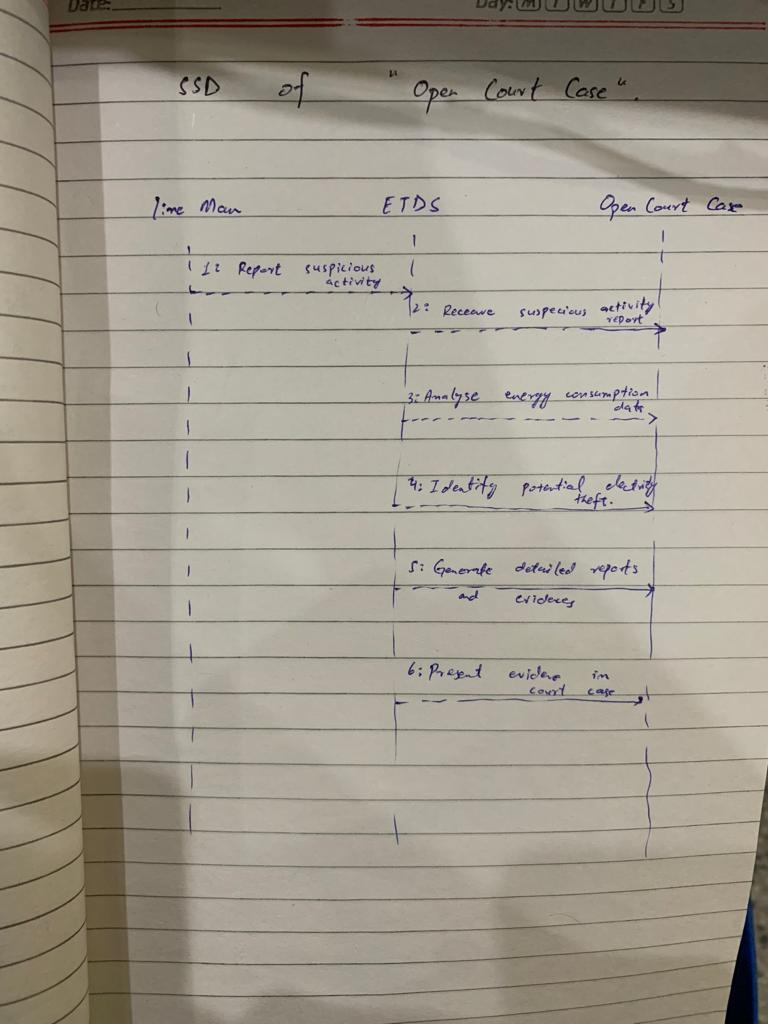 Date:
Day: M T W T F S
SSD of "Open Court Case".
line Man ETDS Open Court Case
1: Report suspicious
activity
2: Receave suspecious activity
report
3: Analyse energy consumption
data
4: Identify potential
theft.
5: Generate detailed reports
and evidences
6: Present evidene in
court case